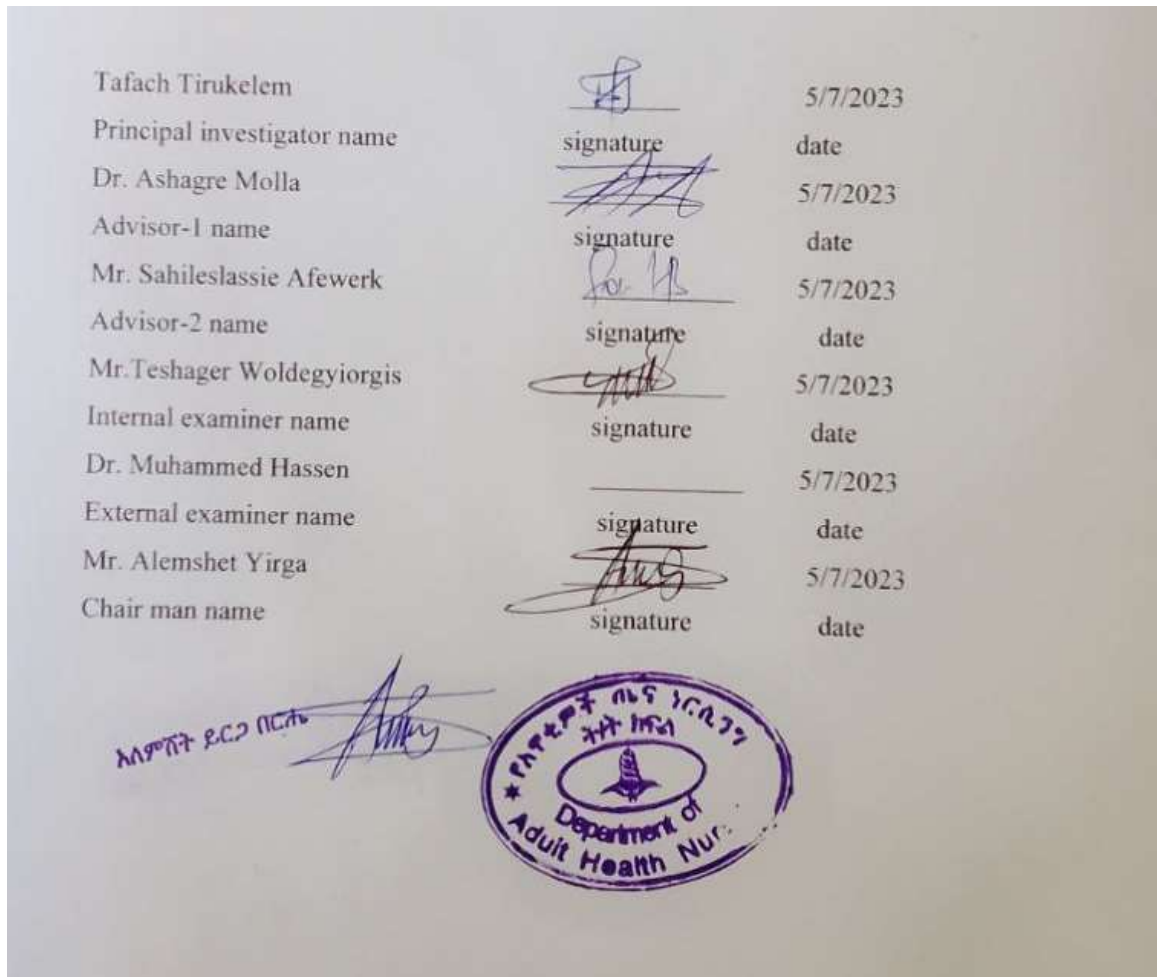 Tafach Tirukelem 5/7/2023
Principal investigator name signature date
Dr. Ashagre Molla 5/7/2023
Advisor-1 name signature date
Mr. Sahileslassie Afewerk 5/7/2023
Advisor-2 name signature date
Mr.Teshager Woldegyiorgis 5/7/2023
Internal examiner name signature date
Dr. Muhammed Hassen 5/7/2023
External examiner name signature date
Mr. Alemshet Yirga 5/7/2023
Chair man name signature date
አለምሸት ይርጋ በርሔ
የአዋቂዎች ጤና ነርሲንግ
ትምህርት ክፍል
Department of
Aduit Health Nur.